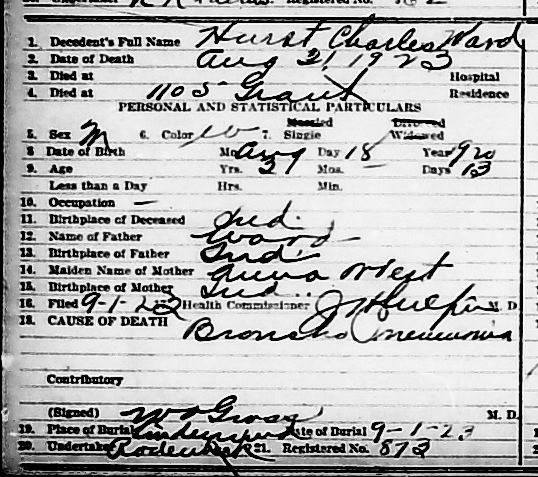 1. Decedent's Full Name Hurst Charles Ward
2. Date of Death Aug 31, 1923
3. Died at Hospital
4. Died at 110 S Grant Residence
PERSONAL AND STATISTICAL PARTICULARS
Married Divorced
5. Sex M 6. Color W 7. Single Widowed
8 Date of Birth Mo. Aug Day 18 Year 920
9. Age Yrs. 3 Mos. — Days 13
Less than a Day Hrs. Min.
10. Occupation —
11. Birthplace of Deceased Ind.
12. Name of Father Ward
13. Birthplace of Father Ind
14. Maiden Name of Mother West
15. Birthplace of Mother Ind..
16. Filed 9-1-23 Health Commissioner M. D.
18. CAUSE OF DEATH Broncho Pneumonia
Contributory
(Signed) W O Gross M. D.
19. Place of Burial Lindenwood Date of Burial 9-1-23
20. Undertaker 21. Registered No. 873